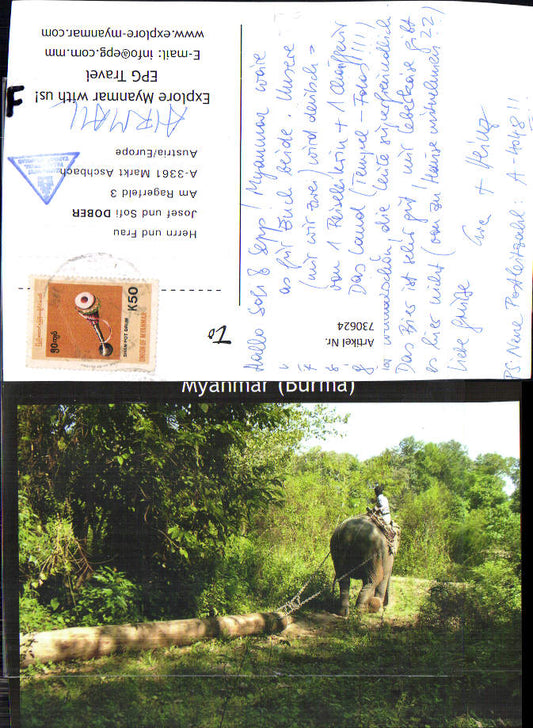 Hallo Sofi & Sepp! Myanmar wäre
was für Euch beide. Unsere
(nur wir zwei) wird deutsch =
von 1 Reiseleiterin + 1 Chauffeur
Das Land (Tempel - Fotos!!!!)
wunderschön, die Leute superfreundlich.
Das Bier ist sehr gut, nur Leberkäse gibt
es hier nicht (von zu Hause mitnehmen??)
Liebe Grüße
Eva + Heinz
PS Neue Postleitzahl: A-4048!!
Artikel Nr.
730624
To
K50
OZIAN POT DRUM
UNION OF BURMA
Herrn und Frau
Josef und Sofi DOBER
Am Ragerfeld 3
A-3361 Markt Aschbach
Austria/Europe
AIRMAIL
Explore Myanmar with us!
EPG Travel
E-mail: info@epg.com.mm
www.explore-myanmar.com
F
Myanmar (Burma)